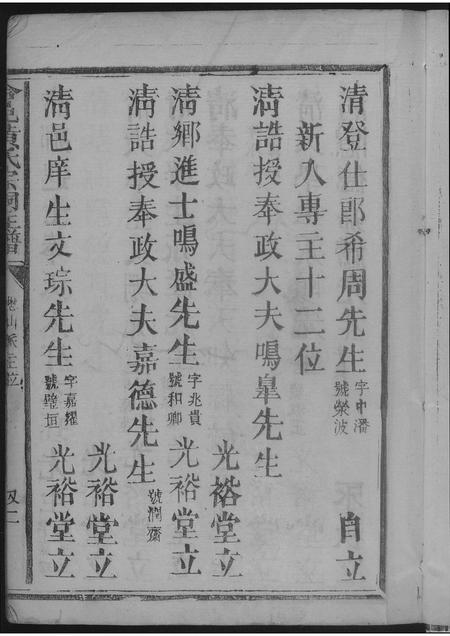 清登仕郎希周先生 字中潘 號榮波 自立
新入專主十二位
清誥授奉政大夫鳴皋先生 光裕堂立
清鄉進士鳴盛先生 字兆貴 號和卿 光裕堂立
清誥授奉政大夫嘉德先生 號潤齋 光裕堂立
清邑庠生文琮先生 字嘉耀 號璧垣 光裕堂立
黃氏宗祠主譜
山派主位